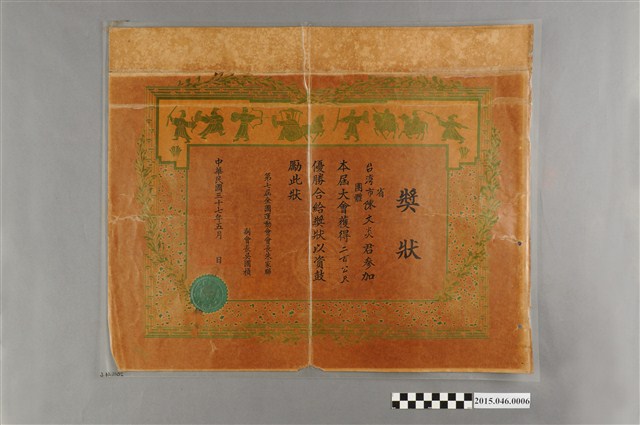 獎狀
台灣省市團體徐文 君參加
本屆大會獲得二百公尺
優勝合給獎狀以資鼓
勵此狀
第七屆全國運動會會長朱家驊
副會長吳國楨
中華民國三十七年五月 日
2015.046.0006